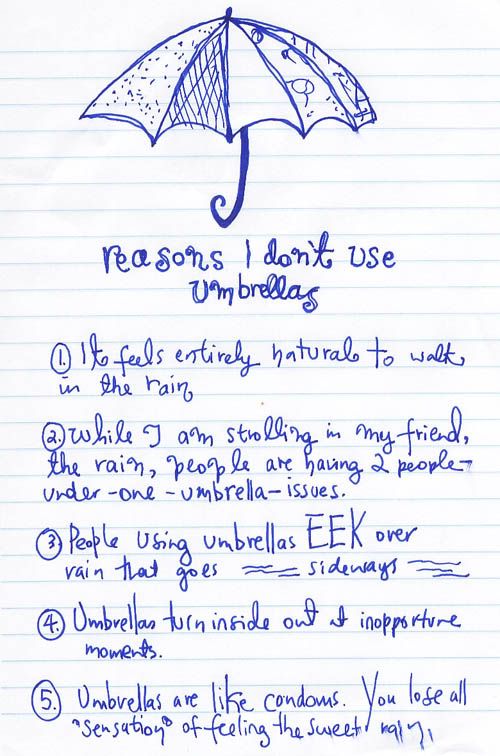 reasons I don't use
umbrellas
1. It feels entirely natural to walk
in the rain
2. While I am strolling in my friend,
the rain, people are having 2 people-
under-one-umbrella-issues.
3 People using umbrellas EEK over
rain that goes sideways
4. Umbrellas turn inside out at inopportune
moments.
5. Umbrellas are like condoms. You lose all
"sensation" of feeling the sweet rain.